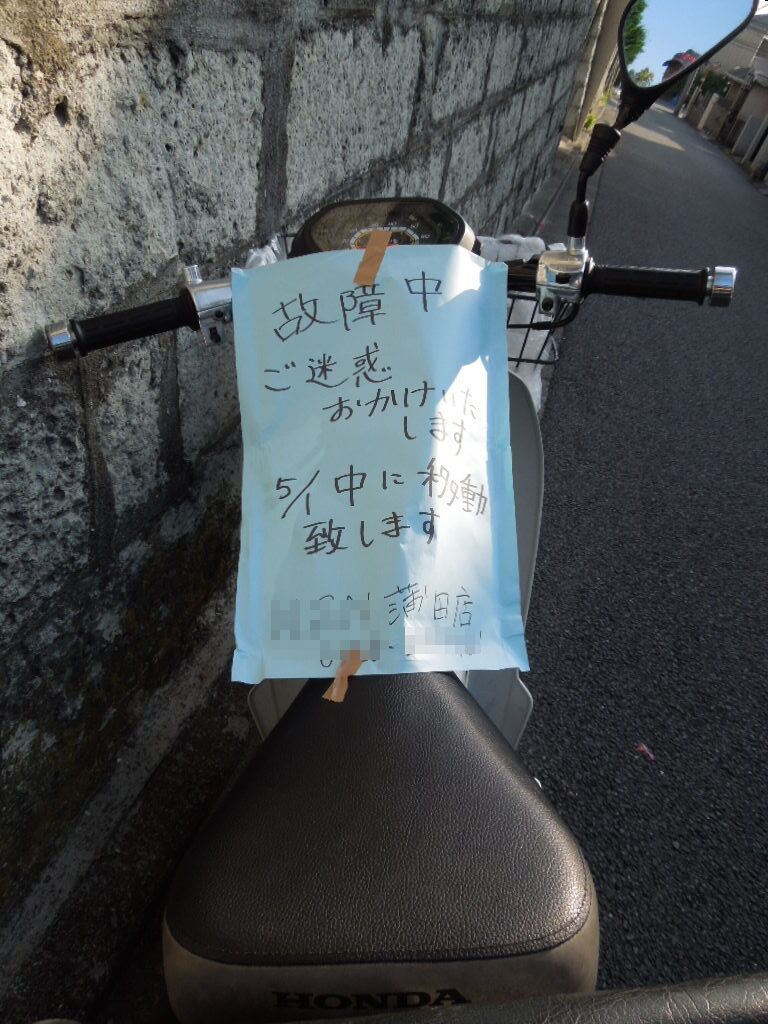 故障中
ご迷惑
おかけいた
します
5/1中に移動
致します
蒲田店
HONDA